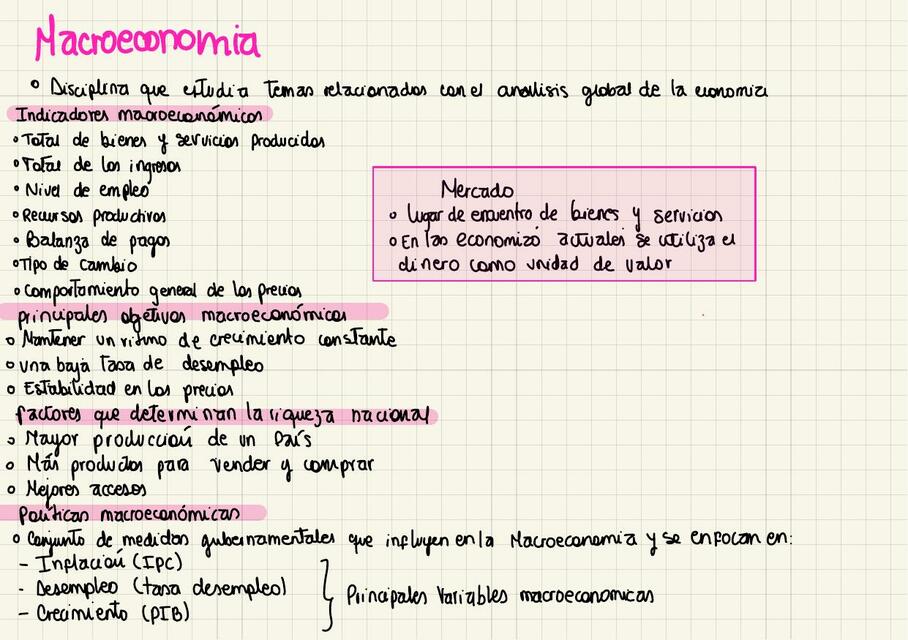 Macroeconomia
° Disciplina que estudia temas relacionados con el analisis global de la economia
Indicadores macroeconómicos
° Total de bienes y servicios producidos
° Total de los ingresos
° Nivel de empleo
° Recursos productivos
° Balanza de pagos
° Tipo de cambio
° Comportamiento general de los precios
Mercado
° lugar de encuentro de bienes y servicios
° En las economizó actuales se utiliza el
dinero como unidad de valor
principales objetivos macroeconómicos
° Mantener un ritmo de crecimiento constante
° una baja tasa de desempleo
° Estabilidad en los precios
factores que determinan la riqueza nacional
° Mayor producción de un País
° Más productos para vender y comprar
° Mejores accesos
Políticas macroeconómicas
° Conjunto de medidas gubernamentales que influyen en la Macroeconomia y se enfocan en:
- Inflación (IPC)
- Desempleo (tasa desempleo)
- Crecimiento (PIB)
} Principales Variables macroeconomicas